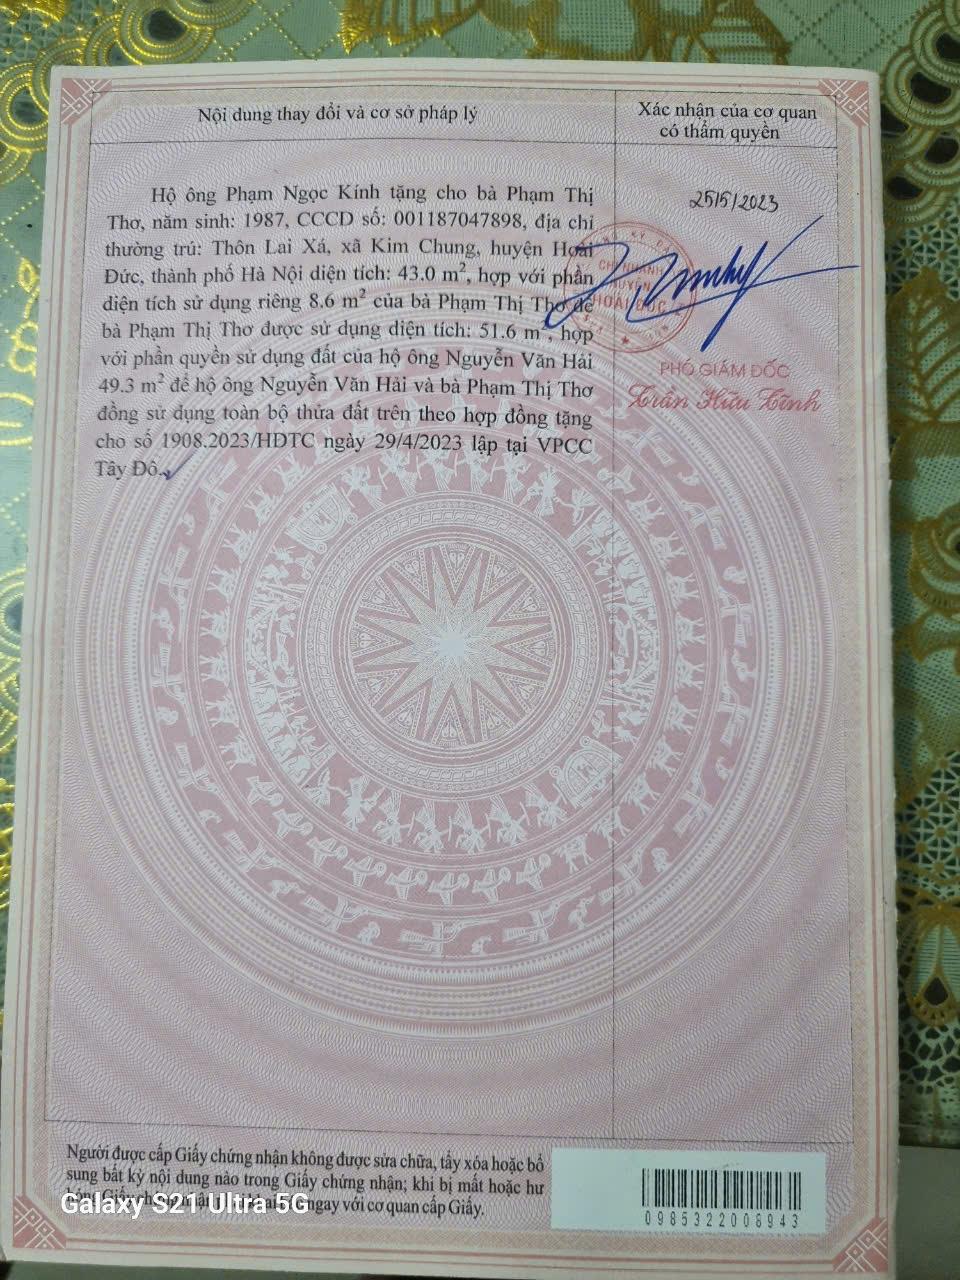 Nội dung thay đổi và cơ sở pháp lý
Xác nhận của cơ quan
có thẩm quyền
Hộ ông Phạm Ngọc Kính tặng cho bà Phạm Thị
Thơ, năm sinh: 1987, CCCD số: 001187047898, địa chỉ
thường trú: Thôn Lai Xá, xã Kim Chung, huyện Hoài
Đức, thành phố Hà Nội diện tích: 43.0 m², hợp với phần
diện tích sử dụng riêng 8.6 m² của bà Phạm Thị Thơ để
bà Phạm Thị Thơ được sử dụng diện tích: 51.6 m², hợp
với phần quyền sử dụng đất của hộ ông Nguyễn Văn Hải
49.3 m² để hộ ông Nguyễn Văn Hải và bà Phạm Thị Thơ
đồng sử dụng toàn bộ thửa đất trên theo hợp đồng tặng
cho số 1908.2023/HĐTC ngày 29/4/2023 lập tại VPCC
Tây Đô.
25/5/2023
CHI NHÁNH
HUYỆN
HOÀI ĐỨC
PHÓ GIÁM ĐỐC
Trần Hữu Tĩnh
Người được cấp Giấy chứng nhận không được sửa chữa, tẩy xóa hoặc bổ
sung bất kỳ nội dung nào trong Giấy chứng nhận; khi bị mất hoặc hư
ngay với cơ quan cấp Giấy.
Galaxy S21 Ultra 5G
0985322008943